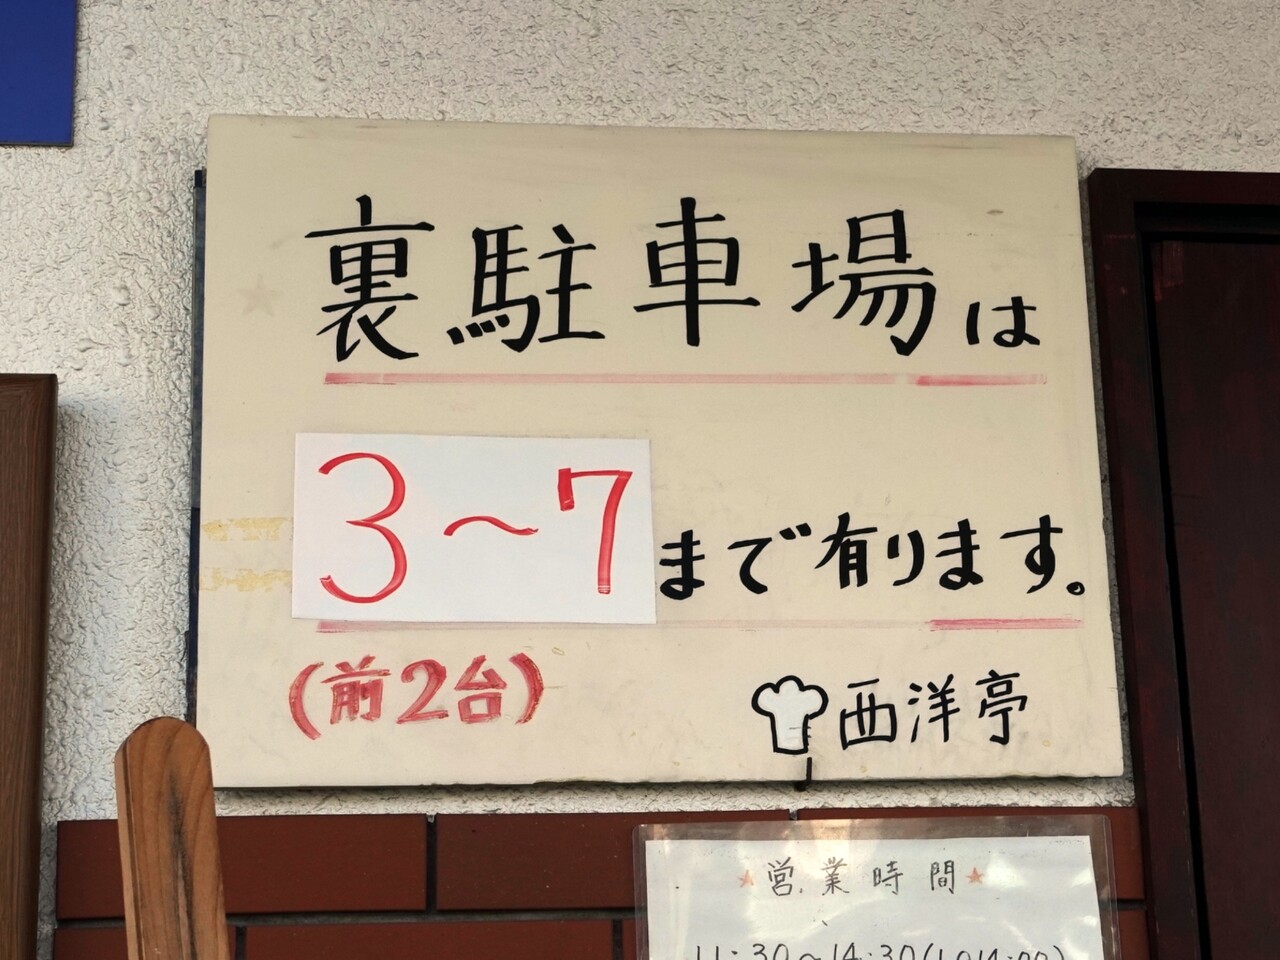 裏駐車場は
3～7まで有ります。
(前2台)
西洋亭
営業時間
11:30～14:30(LO14:00)